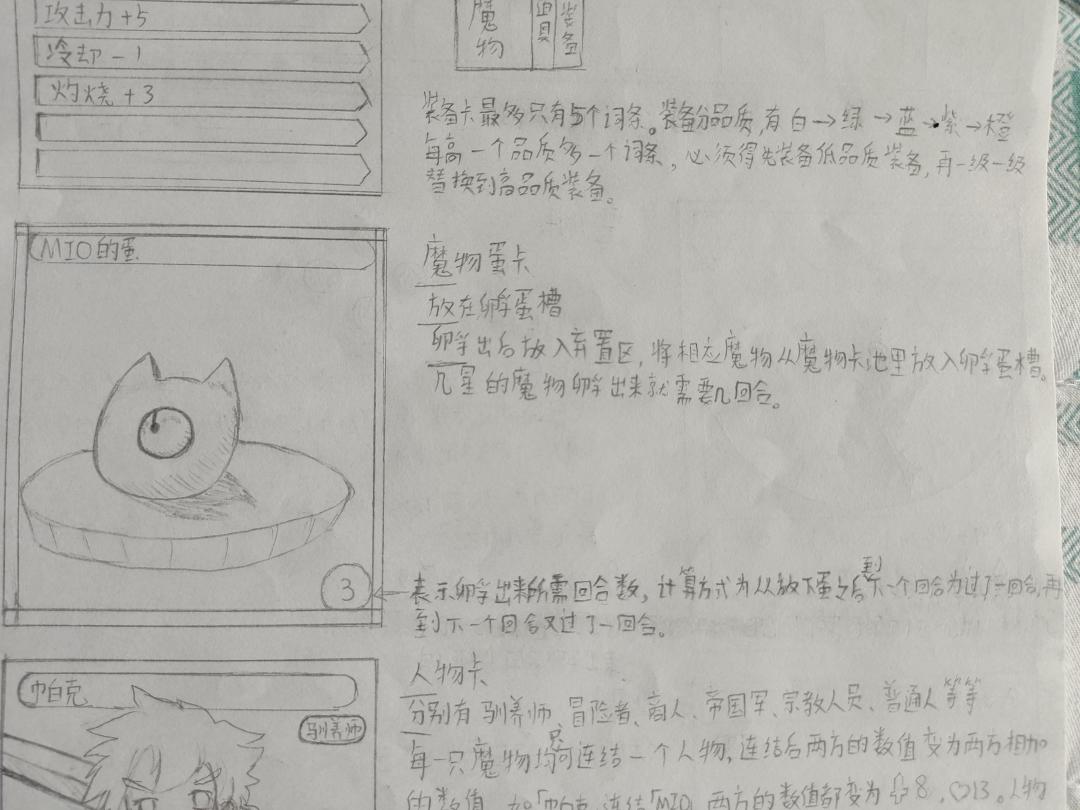 攻击力+5
冷却-1
灼烧+3
魔物
道具
装备
装备卡最多只有5个词条。装备分品质,有白→绿→蓝→紫→橙
每高一个品质多一个词条,必须得先装备低品质装备,再一级一级
替换到高品质装备。
MIO的蛋
魔物蛋卡
放在孵蛋槽
孵出后放入弃置区,将相应魔物从魔物卡池里放入孵蛋槽。
几星的魔物孵出来就需要几回合。
3
表示孵出来所需回合数,计算方式为从放下蛋之后到下一个回合为过了一回合,再
到下一个回合又过了一回合。
人物卡
帕克
驯养师
分别有驯养师、冒险者、商人、帝国军、宗教人员、普通人等等
每一只魔物均只可连结一个人物,连结后两方的数值变为两方相加
的数值,如「帕克」连结「MIO」两方的数值都变为 8,♡13。人物